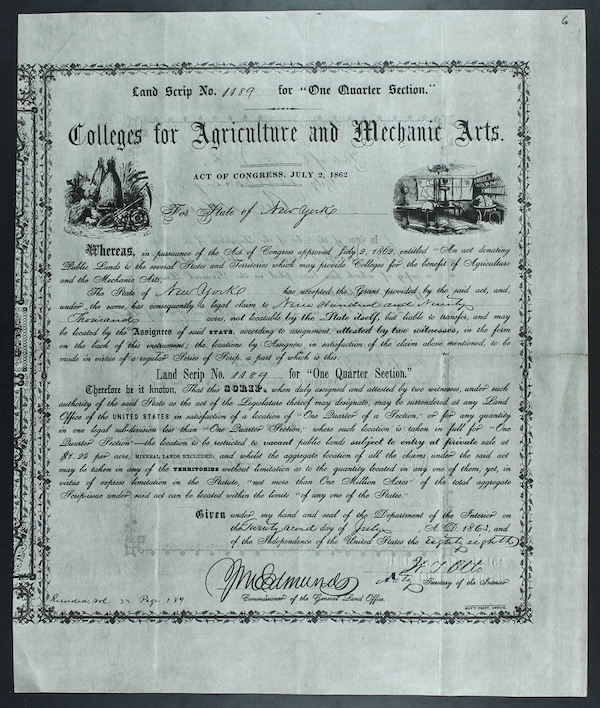 6
Land Scrip No. 1189 for "One Quarter Section."
Colleges for Agriculture and Mechanic Arts.
ACT OF CONGRESS, JULY 2, 1862
For State of New York
Whereas, in pursuance of the Act of Congress approved July 2, 1862, entitled "An act donating
Public Lands to the several States and Territories which may provide Colleges for the benefit of Agriculture
and the Mechanic Arts;"
The State of New York has accepted the Grant provided by the said act, and,
under the same, has consequently a legal claim to Nine Hundred and Ninety
Thousand acres, not locatable by the State itself, but liable to transfer, and may
be located by the Assignees of said STATE, according to assignment, attested by two witnesses, in the form
on the back of this instrument; the locations by Assignees in satisfaction of the claim above mentioned, to be
made in virtue of a regular Series of Scrip, a part of which is this:
Land Scrip No. 1189 for "One Quarter Section."
Therefore be it known, That this SCRIP, when duly assigned and attested by two witnesses, under such
authority of the said State as the act of the Legislature thereof may designate, may be surrendered at any Land
Office of the UNITED STATES in satisfaction of a location of "One Quarter of a Section," or for any quantity
in one legal sub-division less than "One Quarter Section," where such location is taken in full for "One
Quarter Section"—the location to be restricted to vacant public lands subject to entry at private sale at
$1.25 per acre, MINERAL LANDS EXCLUDED; and whilst the aggregate location of all the claims under the said act
may be taken in any of the TERRITORIES without limitation as to the quantity located in any one of them, yet, in
virtue of express limitation in the Statute, "not more than One Million Acres" of the total aggregate
Scrip-issue under said act can be located within the limits "of any one of the States."
Given under my hand and seal of the Department of the Interior on
the twenty second day of July A. D. 1863, and
of the Independence of the United States the eighty eighth
Actg Secretary of the Interior
JM Edmunds
Commissioner of the General Land Office.
Recorded, vol. 32 Page 189
GOV'T PRINT. OFFICE.